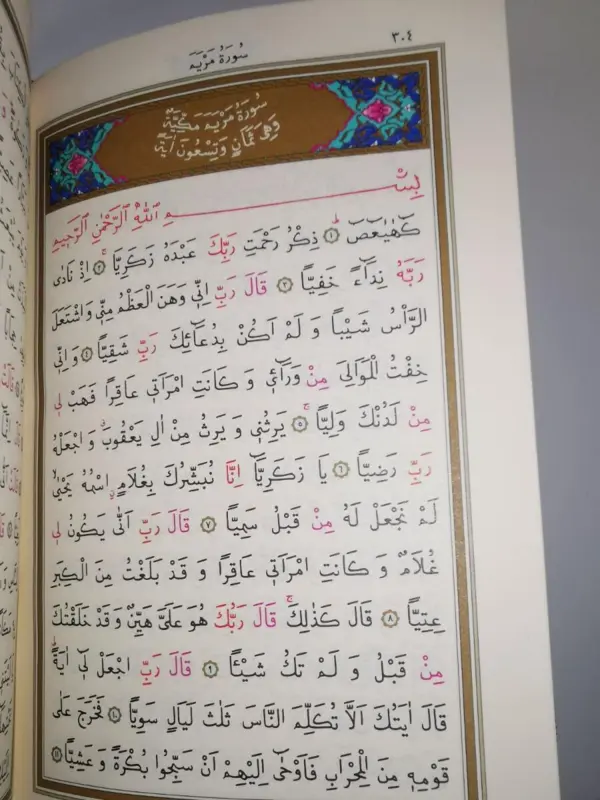 ٣٠٤
سُورَةُ مَرْيَمَ
سُورَةُ مَرْيَمَ مَكِّيَّةٌ
وَهِيَ ثَمَانٍ وَتِسْعُونَ اٰيَةً
بِسْمِ اللّٰهِ الرَّحْمٰنِ الرَّحٖيمِ
كٓهٰيٰعٓصٓ ﴿١﴾ ذِكْرُ رَحْمَتِ رَبِّكَ عَبْدَهُ زَكَرِيَّا ﴿٢﴾ اِذْ نَادٰى
رَبَّهُ نِدَٓاءً خَفِيًّا ﴿٣﴾ قَالَ رَبِّ اِنّٖى وَهَنَ الْعَظْمُ مِنّٖى وَاشْتَعَلَ
الرَّاْسُ شَيْبًا وَ لَمْ اَكُنْ بِدُعَٓائِكَ رَبِّ شَقِيًّا ﴿٤﴾ وَ اِنّٖى
خِفْتُ الْمَوَالِىَ مِنْ وَرَٓاءٖى وَ كَانَتِ امْرَاَتٖى عَاقِرًا فَهَبْ لٖى
مِنْ لَدُنْكَ وَلِيًّا ﴿٥﴾ يَرِثُنٖى وَ يَرِثُ مِنْ اٰلِ يَعْقُوبَ وَ اجْعَلْهُ
رَبِّ رَضِيًّا ﴿٦﴾ يَا زَكَرِيَّٓا اِنَّا نُبَشِّرُكَ بِغُلَامٍ اسْمُهُ يَحْيٰى
لَمْ نَجْعَلْ لَهُ مِنْ قَبْلُ سَمِيًّا ﴿٧﴾ قَالَ رَبِّ اَنّٰى يَكُونُ لٖى
غُلَامٌ وَ كَانَتِ امْرَاَتٖى عَاقِرًا وَ قَدْ بَلَغْتُ مِنَ الْكِبَرِ
عِتِيًّا ﴿٨﴾ قَالَ كَذٰلِكَ قَالَ رَبُّكَ هُوَ عَلَىَّ هَيِّنٌ وَ قَدْ خَلَقْتُكَ
مِنْ قَبْلُ وَ لَمْ تَكُ شَيْئًا ﴿٩﴾ قَالَ رَبِّ اجْعَلْ لٖٓى اٰيَةً
قَالَ اٰيَتُكَ اَلَّا تُكَلِّمَ النَّاسَ ثَلٰثَ لَيَالٍ سَوِيًّا ﴿١٠﴾ فَخَرَجَ عَلٰى
قَوْمِهٖ مِنَ الْمِحْرَابِ فَاَوْحٰٓى اِلَيْهِمْ اَنْ سَبِّحُوا بُكْرَةً وَ عَشِيًّا ﴿١١﴾